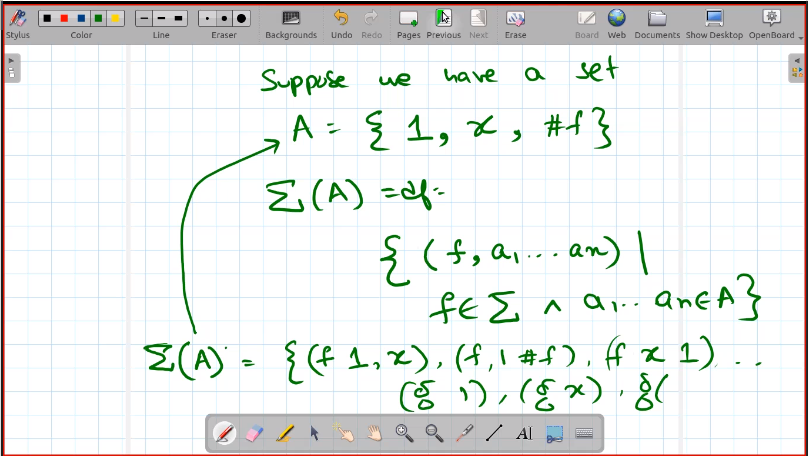 Stylus Color Line Eraser Backgrounds Undo Redo Pages Previous Next Erase Board Web Documents Show Desktop OpenBoard
Suppose we have a set
A = { 1, x, #f }
Σ(A) =df=
{ (f, a1...an) |
f ∈ Σ ∧ a1.. an ∈ A }
Σ(A) = { (f 1, x), (f, 1 #f), (f x 1) ...
(g 1), (g x), g(
A